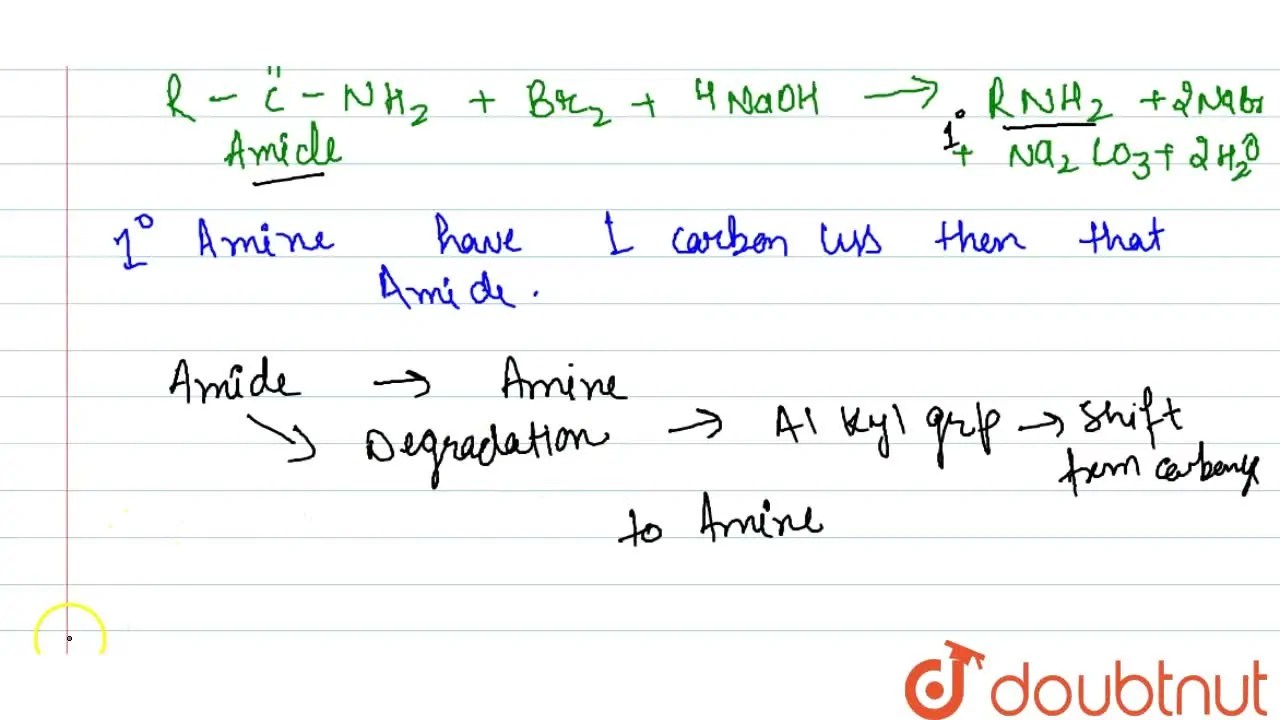 R - C - NH2 + Br2 + 4 NaOH → RNH2 + 2NaBr
Amide 1° + Na2CO3 + 2H2O
1° Amine have 1 carbon less then that
Amide.
Amide → Amine
Degradation → Alkyl grp → Shift
from carbonyl
to Amine
doubtnut